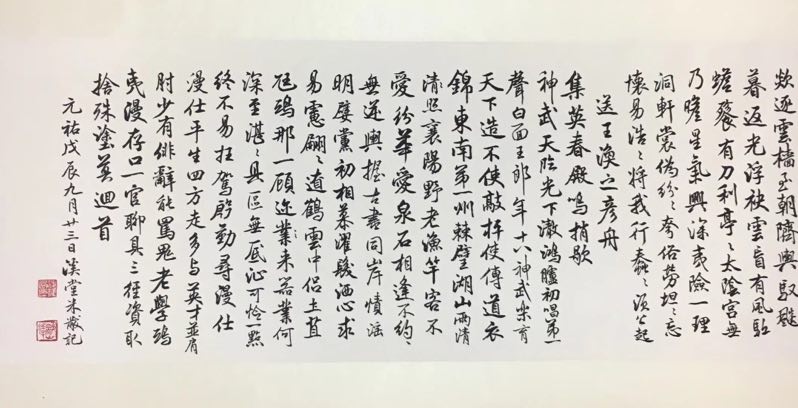 欻逐雲檣至朝隮輿馭飈
暮返光浮袂雲盲有風駈
蟾餮有刀利亭〻太陰宮無
乃瞻星氣興深夷險一理
洞軒裳偽紛〻夸俗勞坦〻忘
懷易浩〻將我行蠢〻須公起
送王渙之彥舟
集英春殿鳴捎歇
神武天臨光下澈鴻臚初唱第一
聲白面王郎年十八神武樂育
天下造不使敲枰使傳道衣
錦東南第一州棘璧湖山兩清
清照襄陽野老漁竿客不
愛紛華愛泉石相逢不約〻
無逆輿握古書同岸幘淫
朋嬖黨初相慕濯髮洒心求
易慮翩〻遼鶴雲中侶土苴
尫鴟那一顧迩業来器業何
深至湛〻具區無底沚可憐一點
終不易枉駕殷勤尋漫仕
漫仕平生四方走多与英才並肩
肘少有俳辭能罵鬼老學鴟
夷漫存口一官聊具三徑資取
捨殊塗莫迴首
元祐戊辰九月廿三日溪堂米黻記